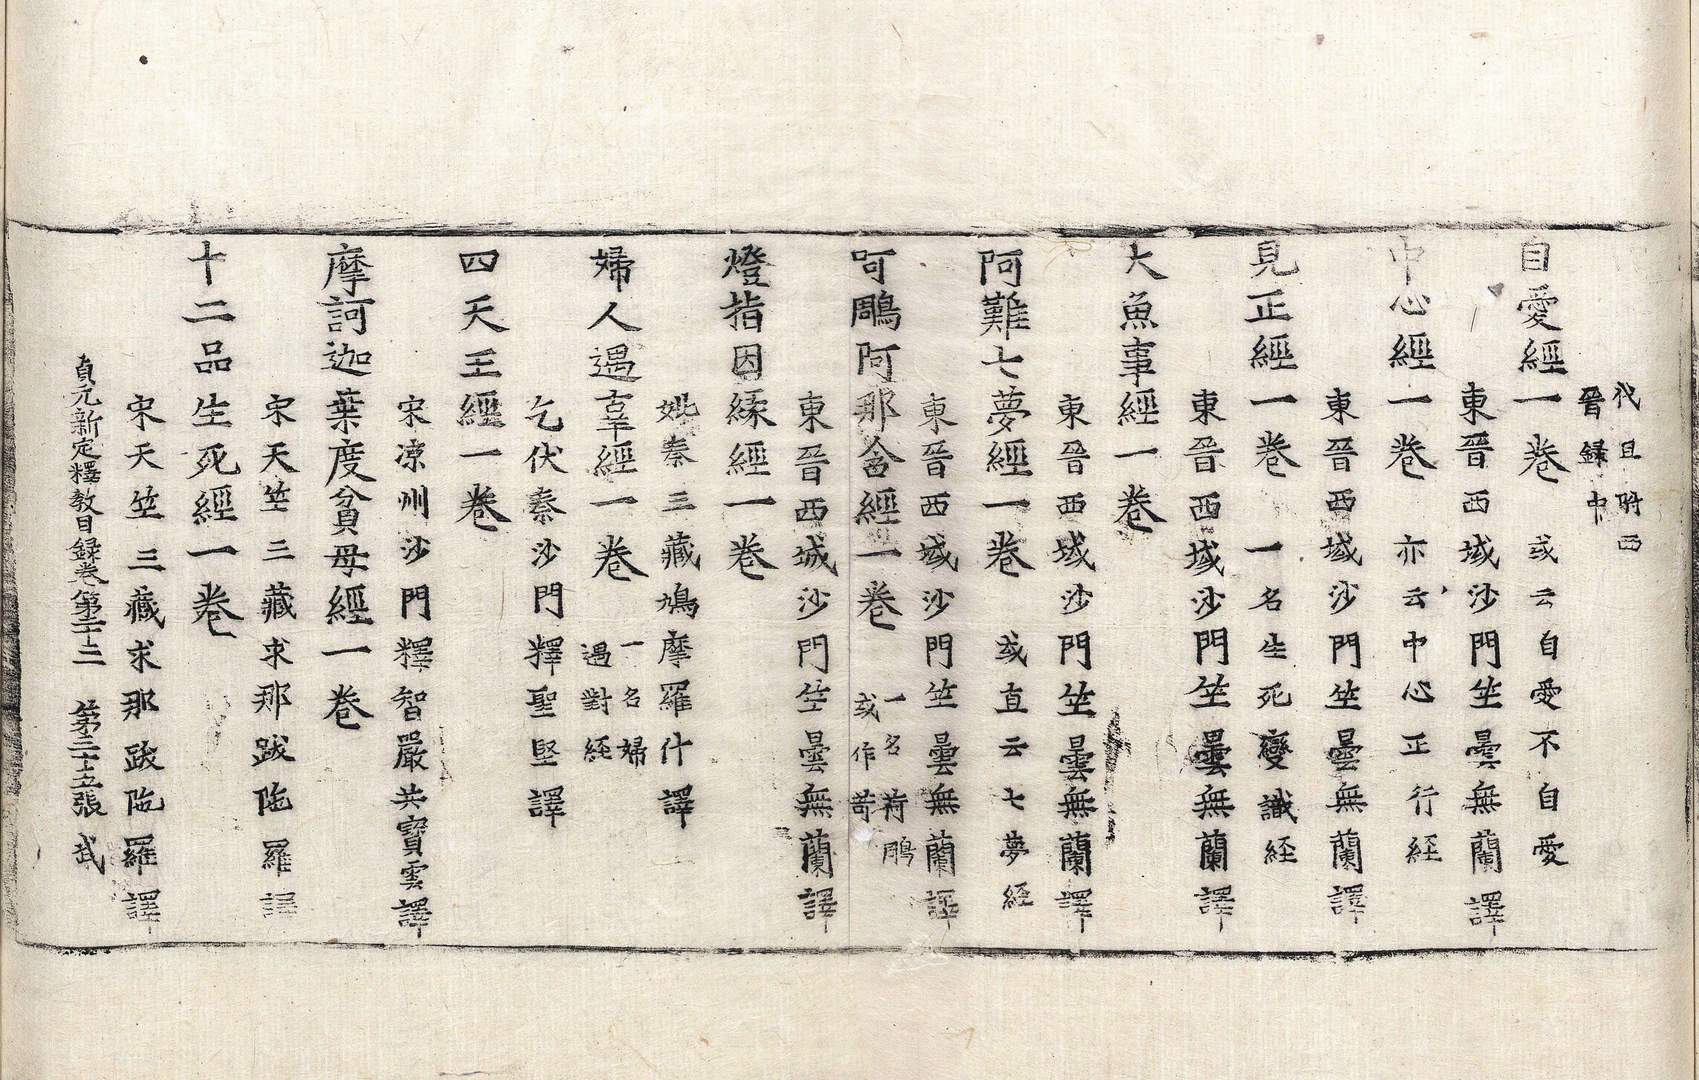 代且附西
晉録中
自愛經一卷 或云自愛不自愛
東晉西域沙門竺曇無蘭譯
中心經一卷 亦云中心正行経
東晉西域沙門竺曇無蘭譯
見正經一卷 一名生死變識経
東晉西域沙門竺曇無蘭譯
大魚事經一卷
東晉西域沙門竺曇無蘭譯
阿難七夢經一卷 或直云七夢經
東晉西域沙門竺曇無蘭譯
呵鵰阿那含經一卷 一名荷鵰
或作苛
東晉西域沙門竺曇無蘭譯
燈指因緣經一卷
姚秦三藏鳩摩羅什譯
婦人遇辜經一卷 一名婦
遇對経
乞伏秦沙門釋聖堅譯
四天王經一卷
宋凉州沙門釋智嚴共寳雲譯
摩訶迦葉度貧母經一卷
宋天竺三藏求那跋陁羅譯
十二品生死經一卷
宋天竺三藏求那跋陁羅譯
貞元新定釋教目録卷第二十二 第三十五張 武